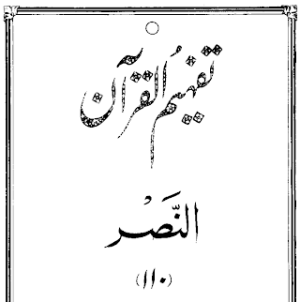 تفہیم القرآن
النَّصْر
(۱۱۰)